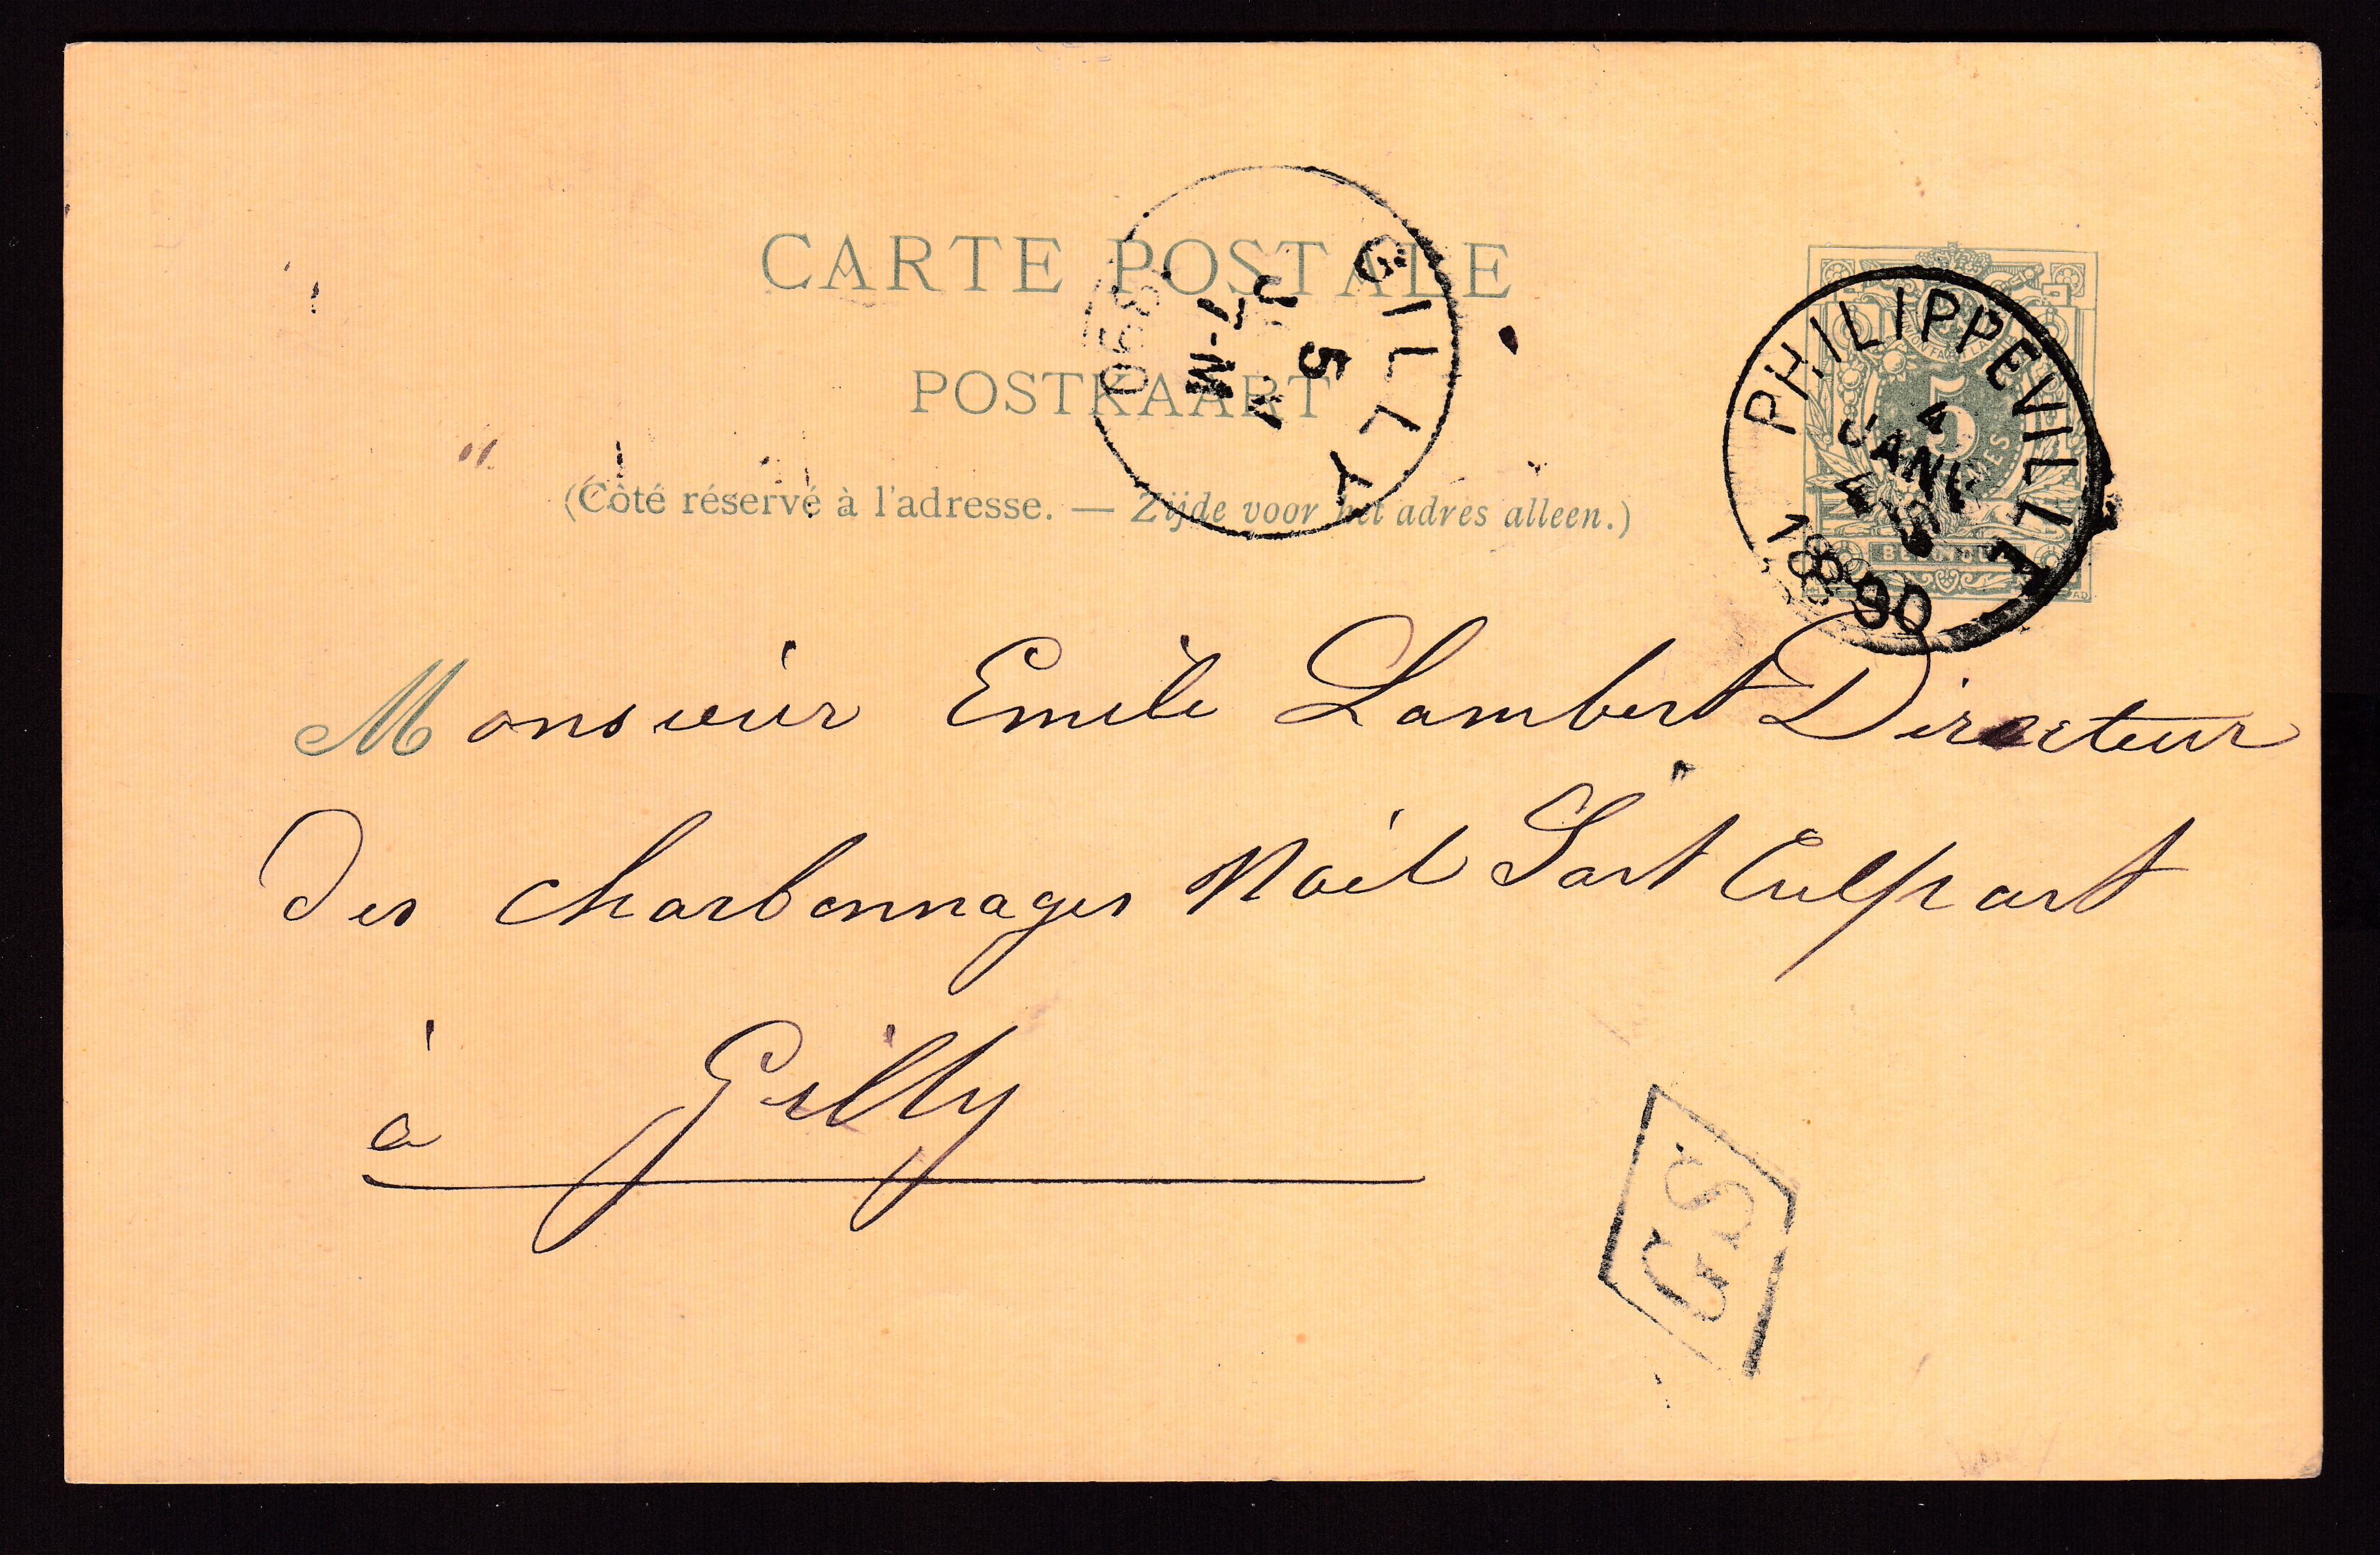 CARTE POSTALE
POSTKAART
(Côté réservé à l'adresse. — Zijde voor het adres alleen.)
GILLY
7-M
5
1890
PHILIPPEVILLE
4
JANV
4-S
1890
5
Monsieur Emile Lambert Directeur
des charbonnages Noël Sart Culpart
à Gilly
GS